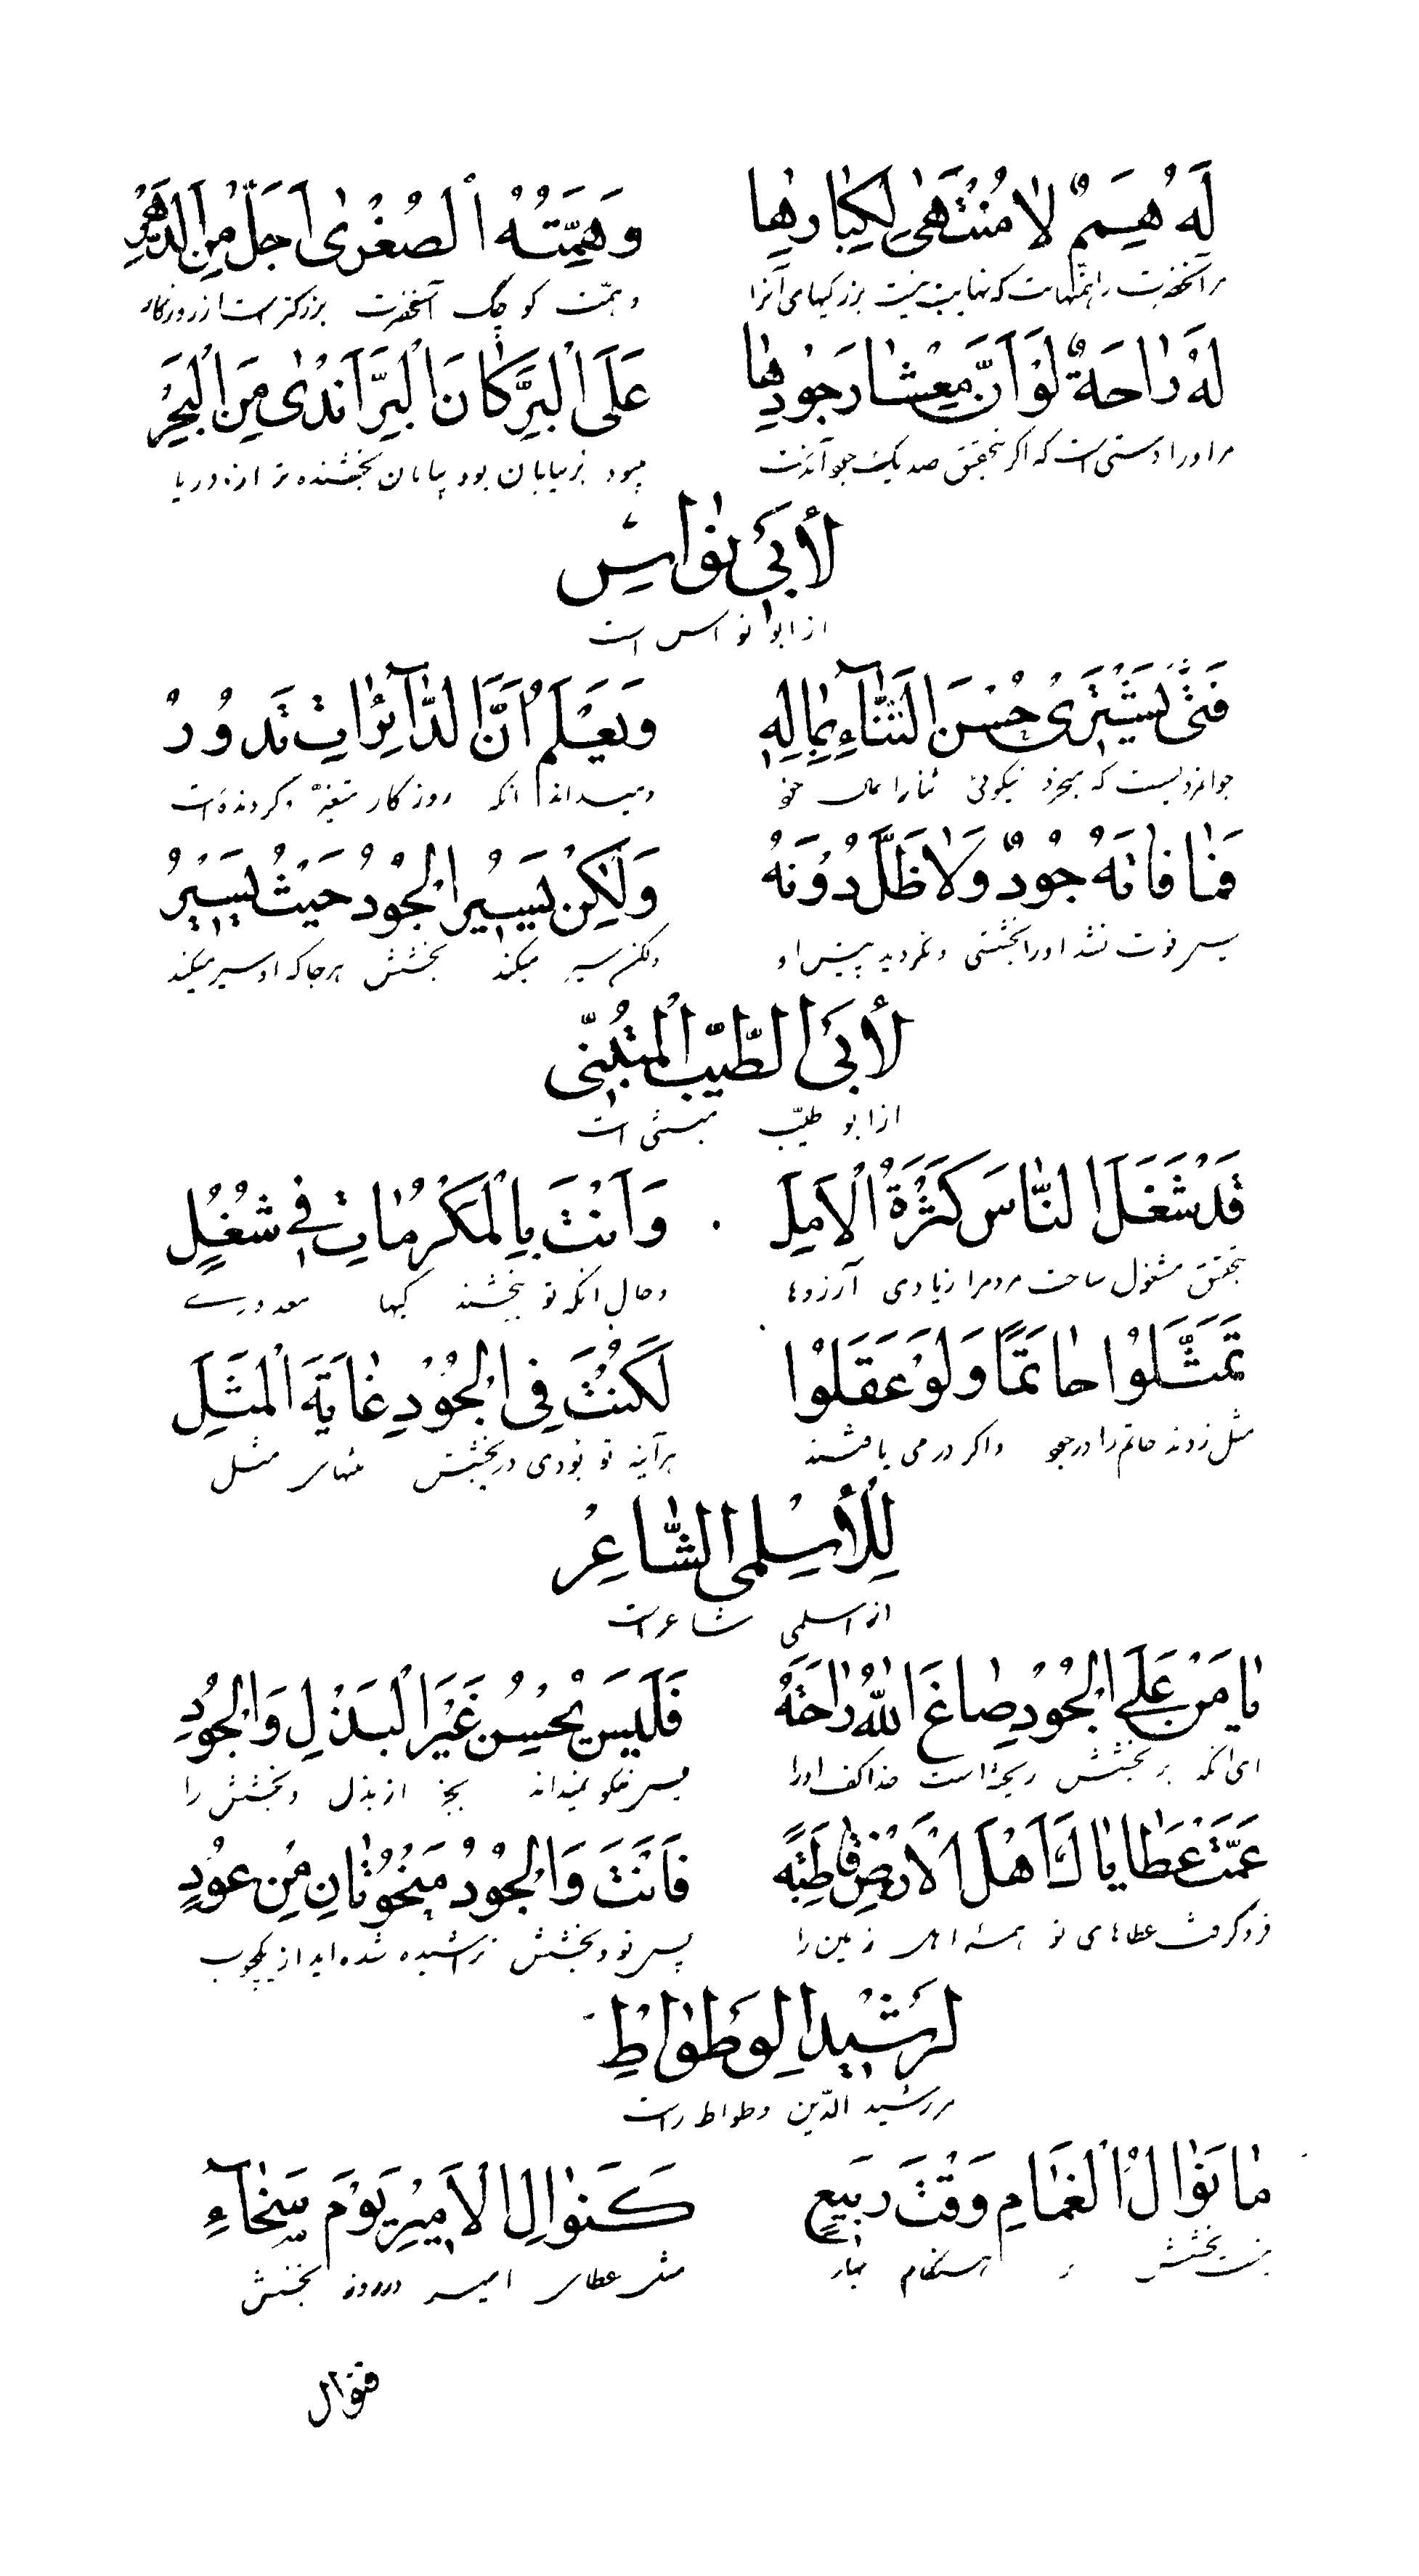 لَهُ هِمَمٌ لَا مُنْتَهَىٰ لِكِبَارِهَا وَهِمَّتُهُ الصُّغْرَىٰ اَجَلُّ مِنَ الدَّهْرِ
مر آنحضرت را همتهاست که نهایت نیست بزرگیهای آنرا و همّت کوچک آنحضرت بزرکتر است از روزکار
لَهُ رَاحَةٌ لَوْ اَنَّ مِعْشَارَ جُوْدِهَا عَلَى الْبَرِّ كَانَ الْبَرُّ اَنْدَىٰ مِنَ الْبَحْرِ
مر او را دستی است که اکر بتحقیق صد یک جود آندست میبود بر بیابان بود بیابان بخشنده تر از دریا
لأبي نواس
از ابو نواس است
فَتًى يَشْتَرِي حُسْنَ الثَّنَاءِ بِمَالِهِ وَيَعْلَمُ اَنَّ الدَّائِرَاتِ تَدُوْرُ
جوانمردیست که بخرد نیکوئی ثنا را بمال خود و میداند انکه روزکار متغیر و کردنده است
فَمَا فَاتَهُ جُوْدٌ وَلَا ظَلَّ دُوْنَهُ وَلٰكِنْ يَسِيْرُ الْجُوْدُ حَيْثُ يَسِيْرُ
پس فوت نشد او را بخششی و نکردید پیش او ولکن سیر میکند بخشش هر جا که او سیر میکند
لأبي الطَّيِّب الْمُتَنَبِّي
از ابو طیّب متنبی است
قَدْ شَغَلَ النَّاسَ كَثْرَةُ الْاَمَلِ وَاَنْتَ بِالْمَكْرُمَاتِ فِي شُغُلٍ
بتحقیق مشغول ساخت مردمرا زیادی آرزوها و حال انکه تو
تَمَثَّلُوْا حَاتَمًا وَلَوْ عَقَلُوْا لَكُنْتَ فِي الْجُوْدِ غَايَةَ الْمَثَلِ
مثل زدند حاتم را در جود و اکر در می یافتند هر آینه تو بودی در بخشش منتهای مثل
لِلْأسلمي الشَّاعِرْ
از اسلمی شاعر است
يَا مَنْ عَلَى الْجُوْدِ صَاغَ اللّٰهُ رَاحَتَهُ فَلَيْسَ يُحْسِنُ غَيْرَ الْبَذْلِ وَالْجُوْدِ
ای انکه بر بخشش ریخته است خدا کف او را پس نیکو نمیداند بجز از بذل و بخشش را
عَمَّتْ عَطَايَاكَ اَهْلَ الْاَرْضِ قَاطِبَةً فَاَنْتَ وَالْجُوْدُ مَنْحُوْتَانِ مِنْ عُوْدٍ
فرو کرفت عطاهای تو همهٔ اهل زمین را پس تو و بخشش تراشیده شده اید از یکچوب
لرَشيْد الوَطْوَاطِ
مر رشید الدّین وطواط راست
مَا نَوَالُ الْغَمَامِ وَقْتَ رَبِيعٍ كَنَوَالِ الْاَمِيْرِ يَوْمَ سَخَاءِ
نیست بخشش هنکام بهار مثل عطای امیر در روز بخشش
فنوال